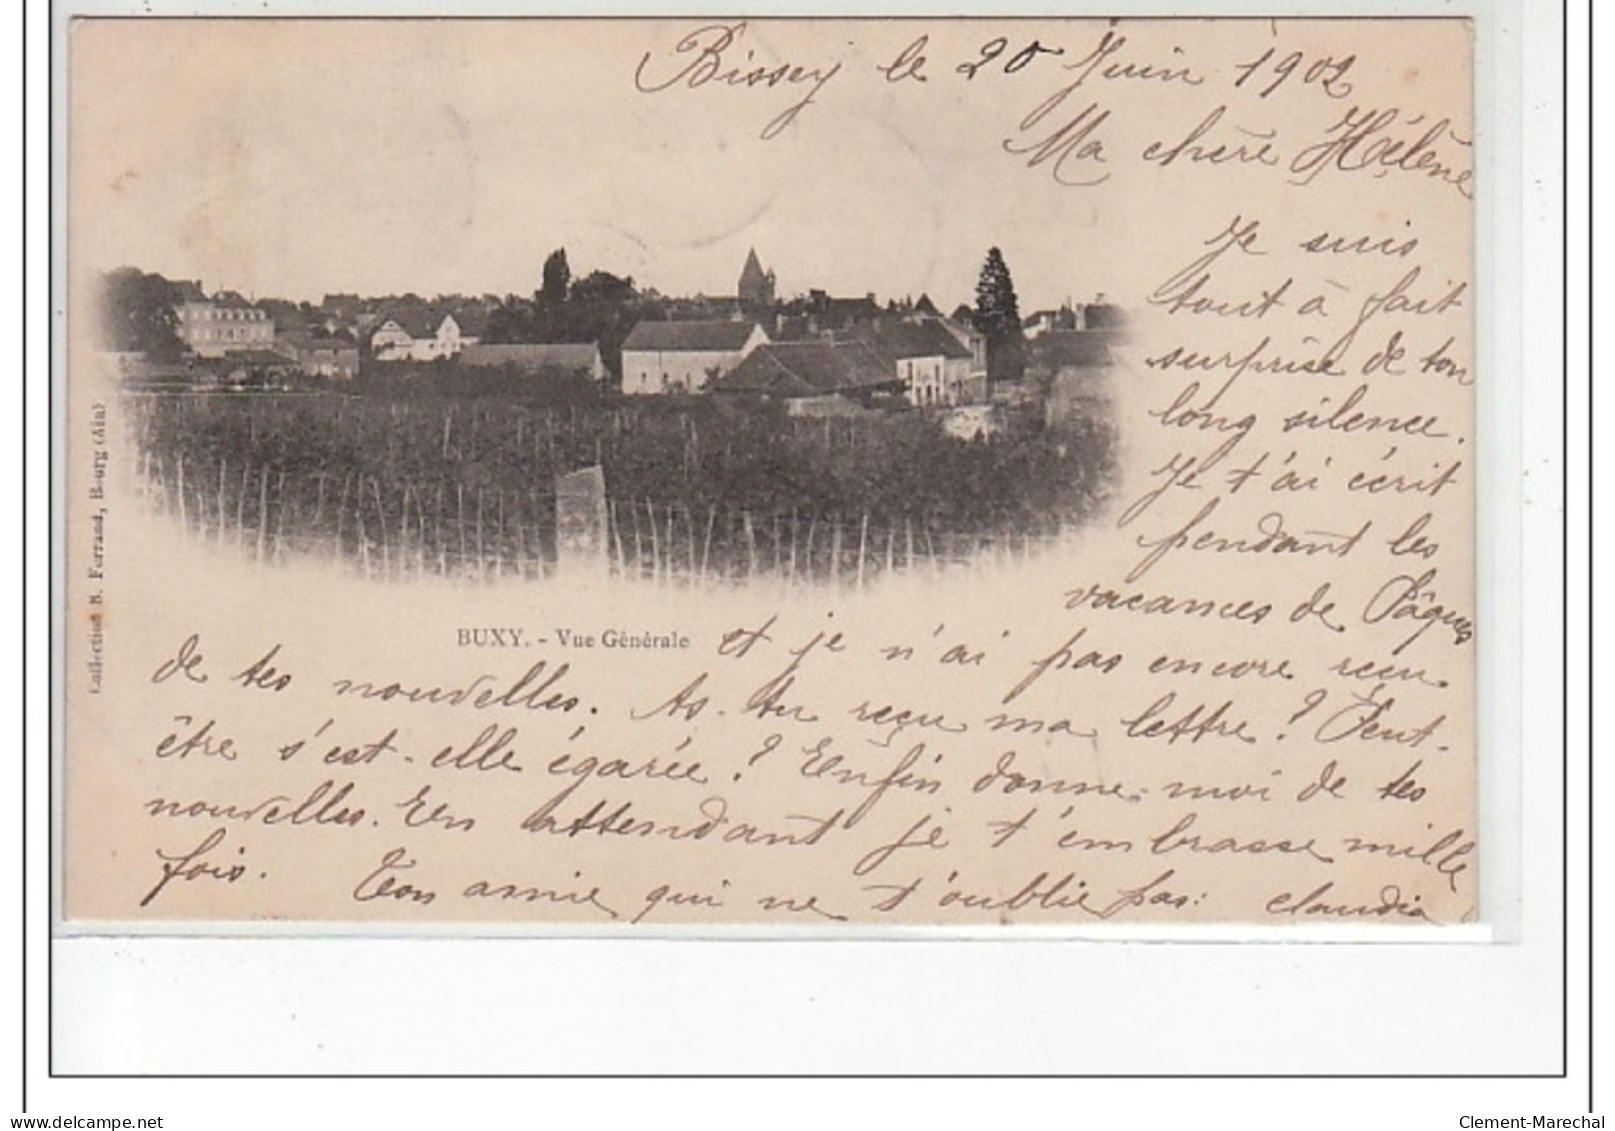 Bissey le 20 Juin 1902
Ma chère Hélène
Je suis
tout à fait
surprise de ton
long silence.
Je t'ai écrit
pendant les
vacances de Pâques
BUXY. - Vue Générale
et je n'ai pas encore reçu
de tes nouvelles. As-tu reçu ma lettre ? Peut-
être s'est-elle égarée ? Enfin donne-moi de tes
nouvelles. En attendant je t'embrasse mille
fois. Ton amie qui ne t'oublie pas: Claudia
Collection B. Ferrand, Bourg (Ain)
delcampe.net
Clement-Marechal